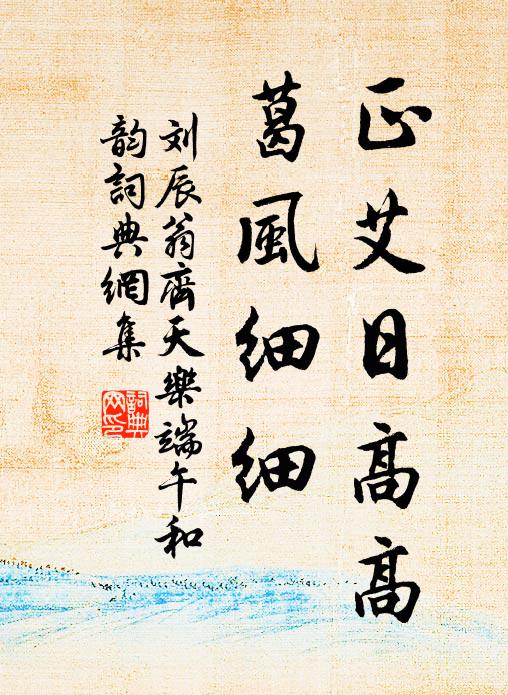 正艾日高高
葛風细细
刘辰翁齊天樂端午和
韵詞典網集
詞典
网印